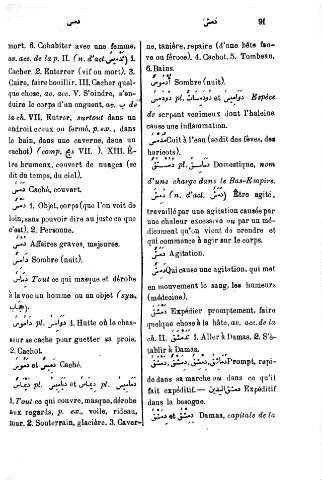 دمس
دمش
91
mort. 6. Cohabiter avec une femme,
ac. acc. de la p. II. (n. d'act. تدميس) 1.
Cacher. 2. Enterrer (vif ou mort). 3.
Cuire, faire bouillir. III. Cacher quel-
que chose, av. acc. V. S'oindre, s'en-
duire le corps d'un onguent, ac. ب de
la ch. VII. Entrer, surtout dans un
endroit creux ou fermé, p. ex., dans
le bain, dans une caverne, dans un
cachot) (comp. دمج VII.). XIII. Ê-
tre brumeux, couvert de nuages (se
dit du temps, du ciel).
Caché, couvert.
دمس 1. Objet, corps (que l'on voit de
loin, sans pouvoir dire au juste ce que
c'est). 2. Personne.
Affaires graves, majeures.
دامس Sombre (nuit).
Tout ce qui masque et dérobe
à la vue un homme ou un objet (syn.
حجاب).
pl. 1. Hutte où le chas-
seur se cache pour guetter sa proie.
2. Cachot.
et Caché.
ديماس pl. دياميس et دماميس
1. Tout ce qui couvre, masque, dérobe
aux regards, p. ex., voile, rideau,
mur. 2. Souterrain, glacière. 3. Caver-
ne, tanière, repaire (d'une bête fau-
ve ou féroce). 4. Cachot. 5. Tombeau.
6. Bains.
Sombre (nuit).
pl. et Espèce
de serpent venimeux dont l'haleine
cause une inflammation.
Cuit à l'eau (se dit des fèves, des
haricots).
pl. Domestique, nom
d'une charge dans le Bas-Empire.
دمش (n. d'act. دمش) Être agité,
travaillé par une agitation causée par
une chaleur excessive ou par un mé-
dicament qu'on vient de prendre et
qui commence à agir sur le corps.
دمش Agitation.
Qui cause une agitation, qui met
en mouvement le sang, les humeurs
(médecine).
دمشق Expédier promptement, faire
quelque chose à la hâte, ac. acc. de la
ch. II. 1. Aller à Damas. 2. S'é-
tablir à Damas.
Prompt, rapi-
de dans sa marche ou dans ce qu'il
fait expéditif.— دمشق اليدين Expéditif
dans la besogne.
دمشق et دمشق Damas, capitale de la